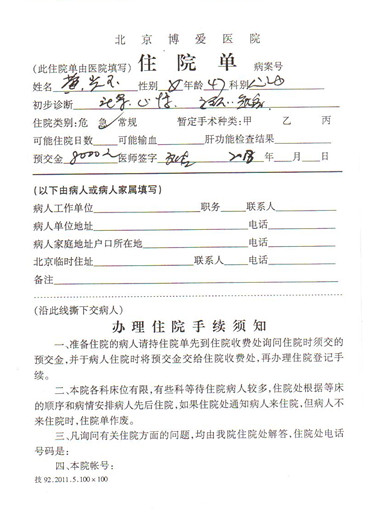 北京博爱医院
(此住院单由医院填写) 住院单 病案号
姓名 性别 女 年龄 47 科别 心内
初步诊断
住院类别:危 急 常规 暂定手术种类:甲 乙 丙
可能住院日数 可能输血 肝功能检查结果
预交金 8000元 医师签字 年 月 日
(以下由病人或病人家属填写)
病人工作单位 职务 联系人
病人单位地址 电话
病人家庭地址户口所在地 电话
北京临时住址 联系人 电话
备注
(沿此线撕下交病人)
办理住院手续须知
一、准备住院的病人请持住院单先到住院收费处询问住院时须交的
预交金,并于病人住院时将预交金交给住院收费处,再办理住院登记手
续。
二、本院各科床位有限,有些科等待住院病人较多,住院处根据等床
的顺序和病情安排病人先后住院,如果住院处通知病人来住院,但病人不
来住院时,住院单作废。
三、凡询问有关住院方面的问题,均由我院住院处解答,住院处电话
号码是:
四、本院帐号:
技 92.2011.5.100×100